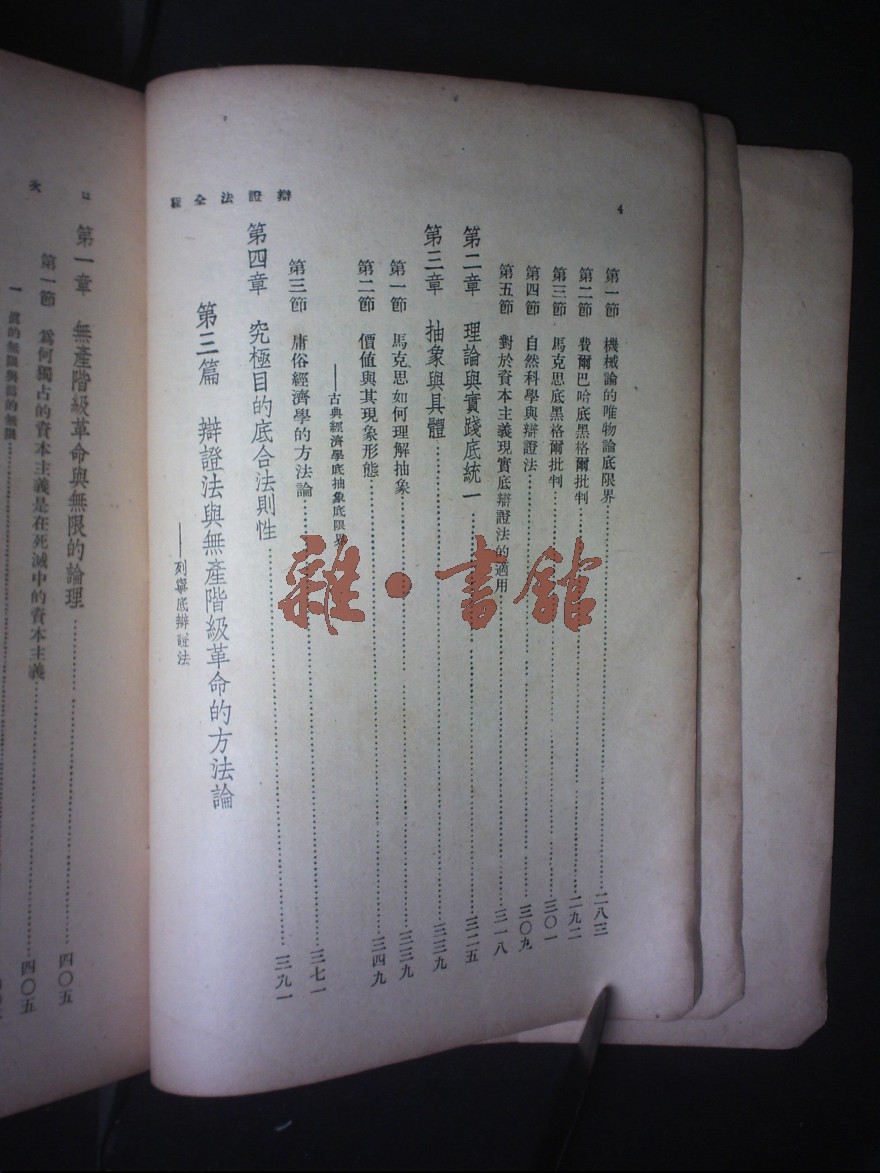 4
辯證法全程
第一節 機械論的唯物論底限界……二八三
第二節 費爾巴哈底黑格爾批判……二九二
第三節 馬克思底黑格爾批判……三〇一
第四節 自然科學與辯證法……三〇九
第五節 對於資本主義現實底辯證法的適用……三一八
第二章 理論與實踐底統一……三二五
第三章 抽象與具體……三三九
第一節 馬克思如何理解抽象……三三九
第二節 價值與其現象形態……三四九
——古典經濟學底抽象底限界
第三節 庸俗經濟學的方法論……三七一
第四章 究極目的底合法則性……三九一
第三篇 辯證法與無產階級革命的方法論
——列寧底辯證法
目次
第一章 無產階級革命與無限的論理……四〇五
第一節 爲何獨占的資本主義是在死滅中的資本主義……四〇五
一 眞的無限與僞的無限……
雜·書館